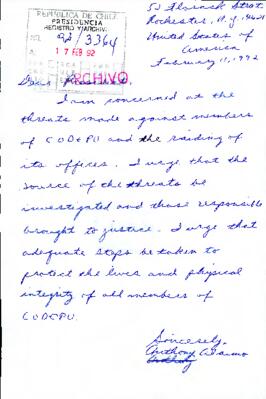 REPUBLICA DE CHILE
PRESIDENCIA
REGISTRO Y ARCHIVO
92/3364
A 17 FEB 92
ARCHIVO
Street
Rochester, N.Y. 14621
United States of
America
February 11, 1992
Dear
I am concerned at the
threats made against members
of CODEPU and the raiding of
its offices. I urge that the
source of the threats be
investigated and those responsible
brought to justice. I urge that
adequate steps be taken to
protect the lives and physical
integrity of all members of
CODEPU.
Sincerely,
Anthony